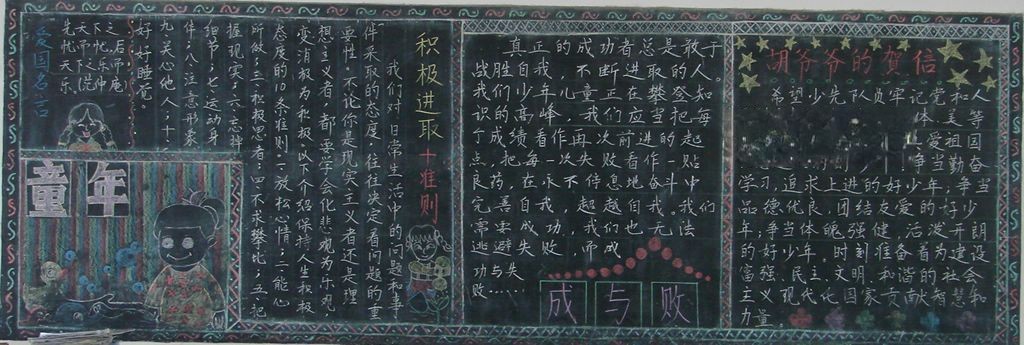 积极进取十准则
我们对日常生活中的问题和事
件采取的态度,往往决定看问题的重
要性。不论你是现实主义者还是理
想主义者,都要学会化悲观为乐观
变消极为积极。以下介绍保持人生积极
态度的10条准则:一放松心情;二能心
所做;三积极思考;四不求攀比;五把
握现实;六忘掉
细节;七运动身
件;八注意形象
九关心他人;十
好好睡觉。
爱国名言
先天下之
忧而忧后
天下乐
乐 仲
童年
真正的成功者总是敢于
战胜自我,不断进取的人。
我们少年儿童正在攀登知
识的高峰,我们应当把每
个成绩看作再次前进的起
点,把每一次失败看作一贴
良药,在永不停息地奋斗中
完善自我,超越自我。我们
常 成功,我们也无法
逃避失败,而成
功与失
败……
成与败
胡爷爷的贺信
希望少先队员牢记党和人
体美等
争当爱祖国
勤奋
学习,追求上进的好少年;争当
品德优良,团结友爱的好少
年;争当体魄强健,活泼开朗
的好少年,时刻准备着为建设
富强、民主、文明、和谐的社会
主义现代化国家贡献智慧和
力量。